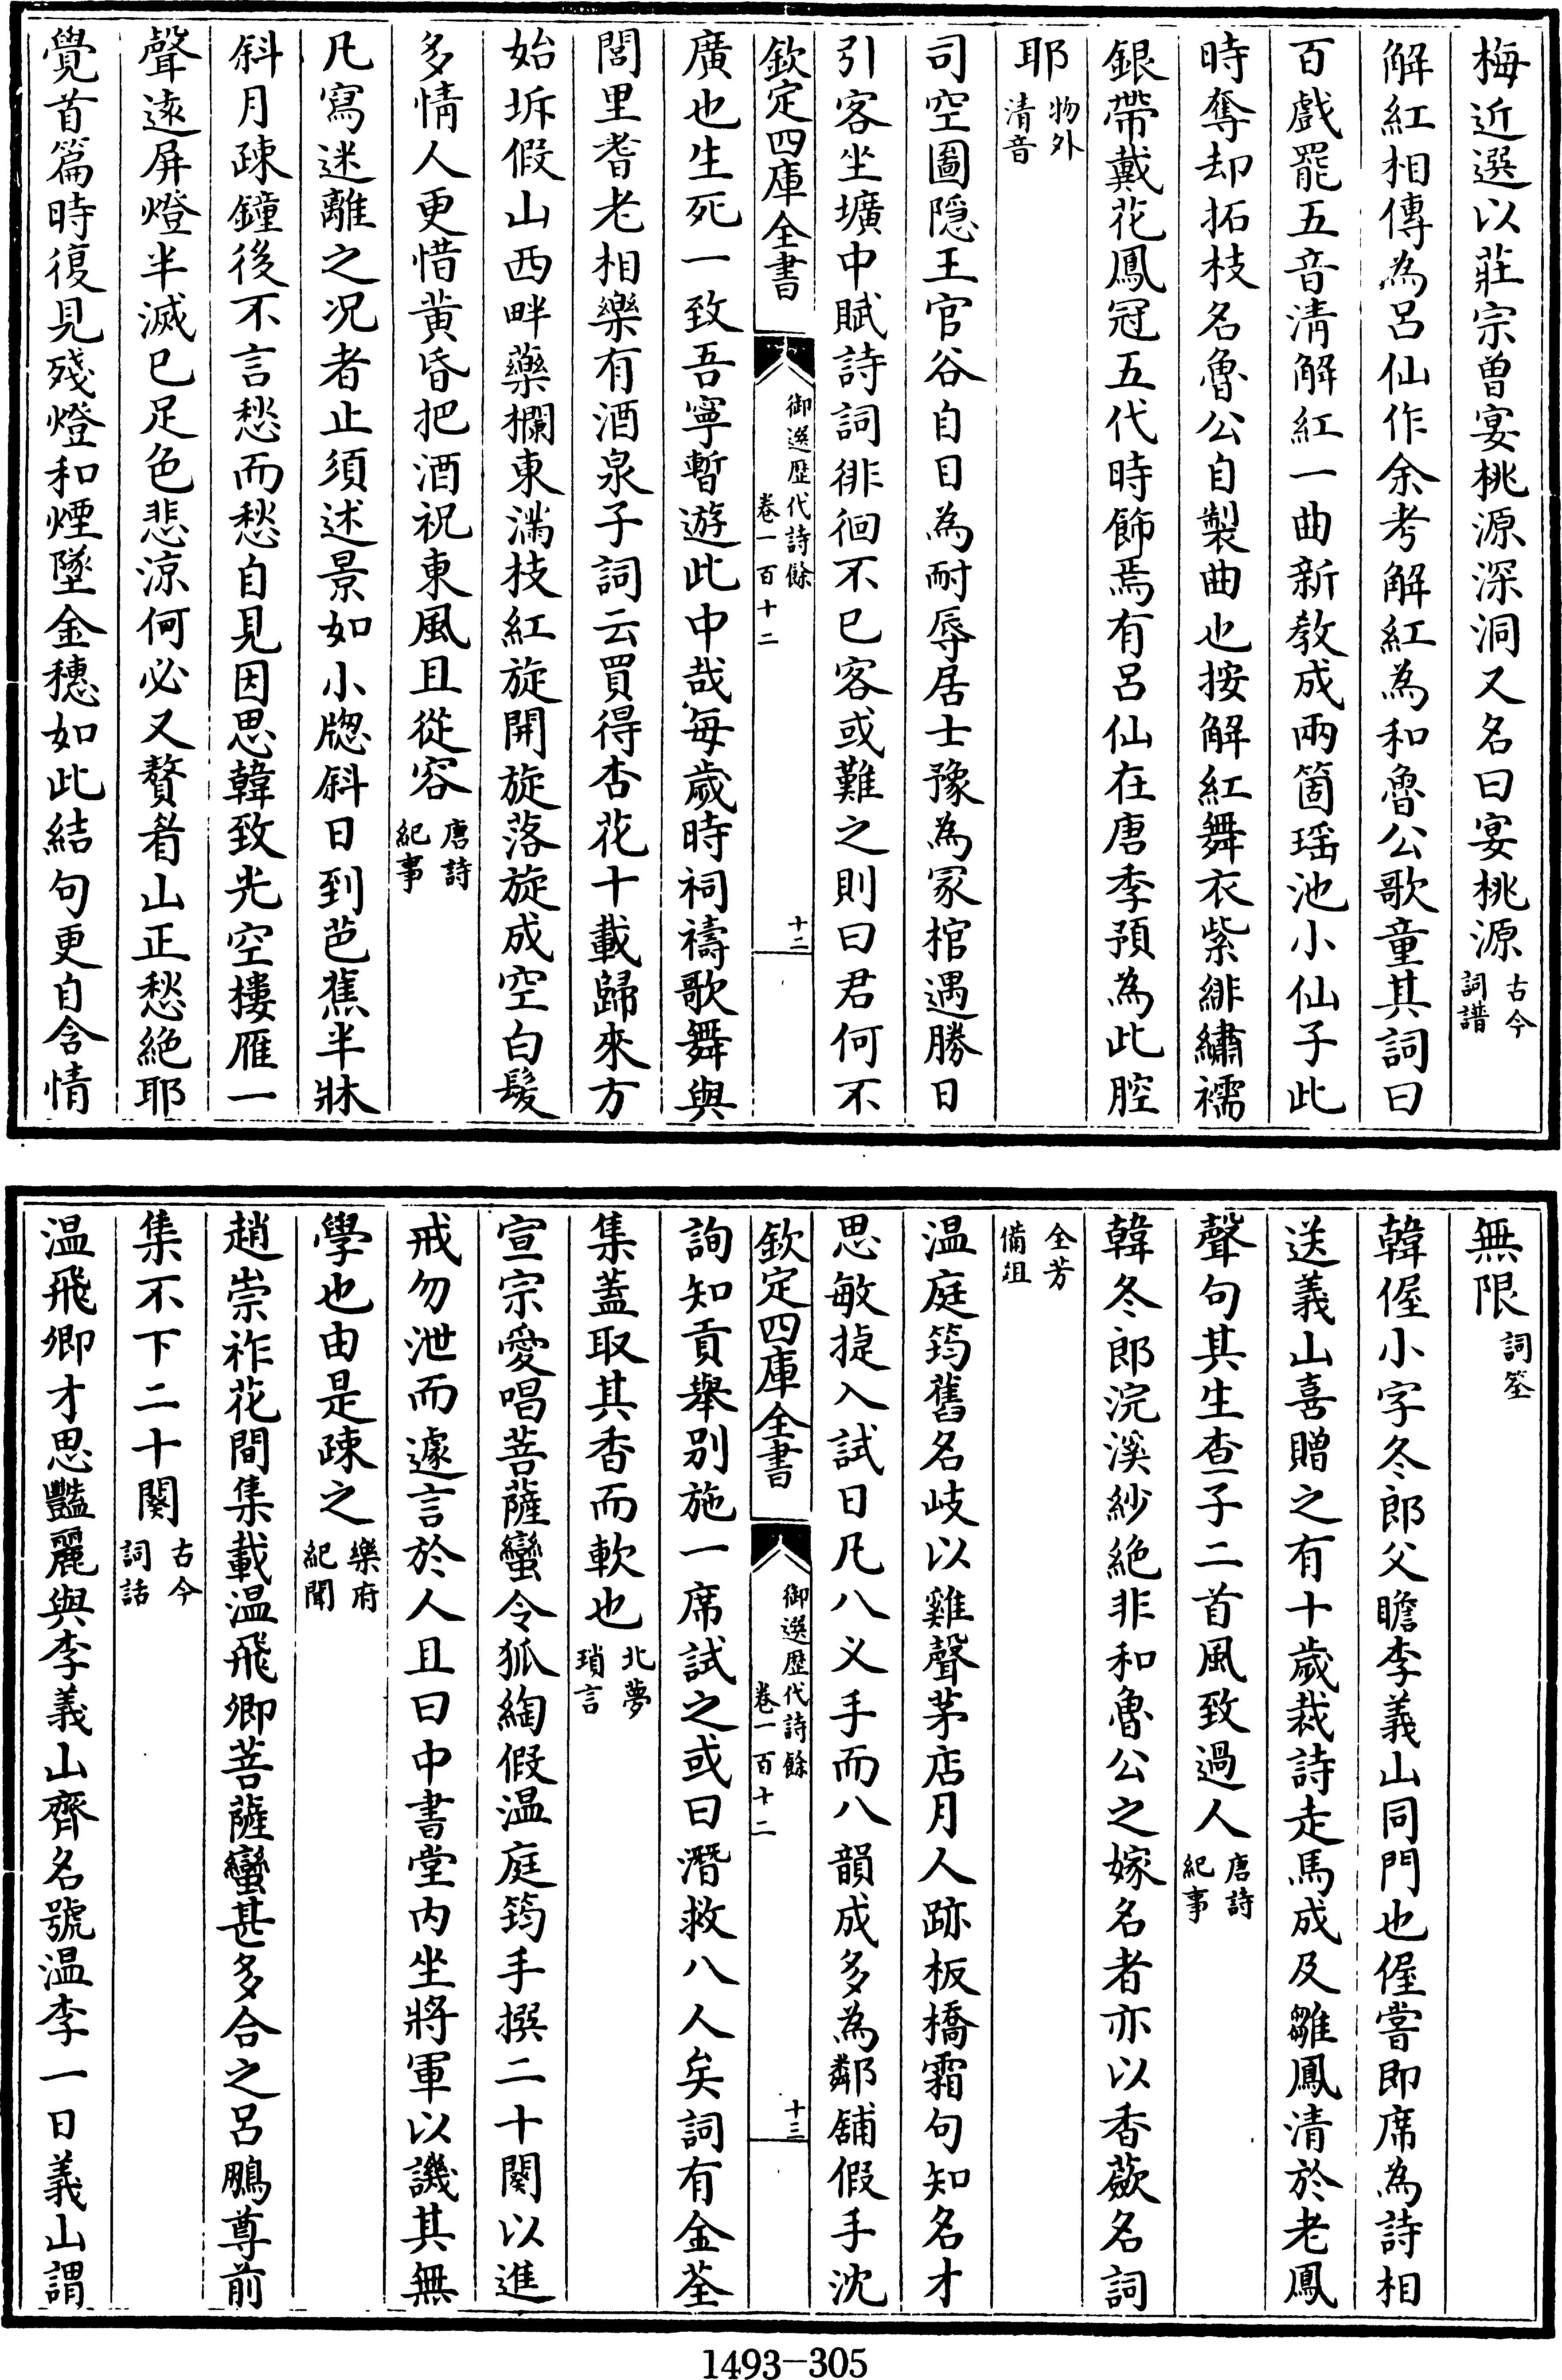 梅近選以莊宗曽宴桃源深洞又名曰宴桃源古今詞譜
解紅相傳為呂仙作余考解紅為和魯公歌童其詞曰
百戲罷五音清解紅一曲新教成兩箇瑶池小仙子此
時奪却拓枝名魯公自製曲也按解紅舞衣紫緋繡襦
銀帶戴花鳳冠五代時飾焉有呂仙在唐季預為此腔
耶物外清音
司空圖隠王官谷自目為耐辱居士豫為冢棺遇勝日
引客坐壙中賦詩詞徘徊不已客或難之則曰君何不
欽定四庫全書
御選歴代詩餘
卷一百十二
十二
廣也生死一致吾寧暫遊此中哉每歲時祠禱歌舞與
閭里耆老相樂有酒泉子詞云買得杏花十載歸來方
始坼假山西畔藥欄東滿枝紅旋開旋落旋成空白髮
多情人更惜黄昏把酒祝東風且從容唐詩紀事
凡寫迷離之况者止須述景如小牕斜日到芭蕉半牀
斜月疎鐘後不言愁而愁自見因思韓致光空樓雁一
聲遠屏燈半滅已足色悲涼何必又贅着山正愁絶耶
覺首篇時復見殘燈和煙墜金穗如此結句更自含情
無限詞筌
韓偓小字冬郎父瞻李義山同門也偓嘗即席為詩相
送義山喜贈之有十歲裁詩走馬成及雛鳳清於老鳳
聲句其生查子二首風致過人唐詩紀事
韓冬郎浣溪紗絶非和魯公之嫁名者亦以香蘞名詞
全芳備俎
温庭筠舊名岐以雞聲茅店月人跡板橋霜句知名才
思敏捷入試日凡八义手而八韻成多為鄰舖假手沈
欽定四庫全書
御選歴代詩餘
卷一百十二
十三
詢知貢舉别施一席試之或曰潛救八人矣詞有金荃
集蓋取其香而軟也北夢瑣言
宣宗愛唱菩薩蠻令狐綯假温庭筠手撰二十闋以進
戒勿泄而遽言於人且曰中書堂内坐將軍以譏其無
學也由是疎之樂府紀聞
趙崇祚花間集載温飛卿菩薩蠻甚多合之呂鵬尊前
集不下二十闋古今詞話
温飛卿才思豔麗與李義山齊名號温李一日義山謂
1493-305